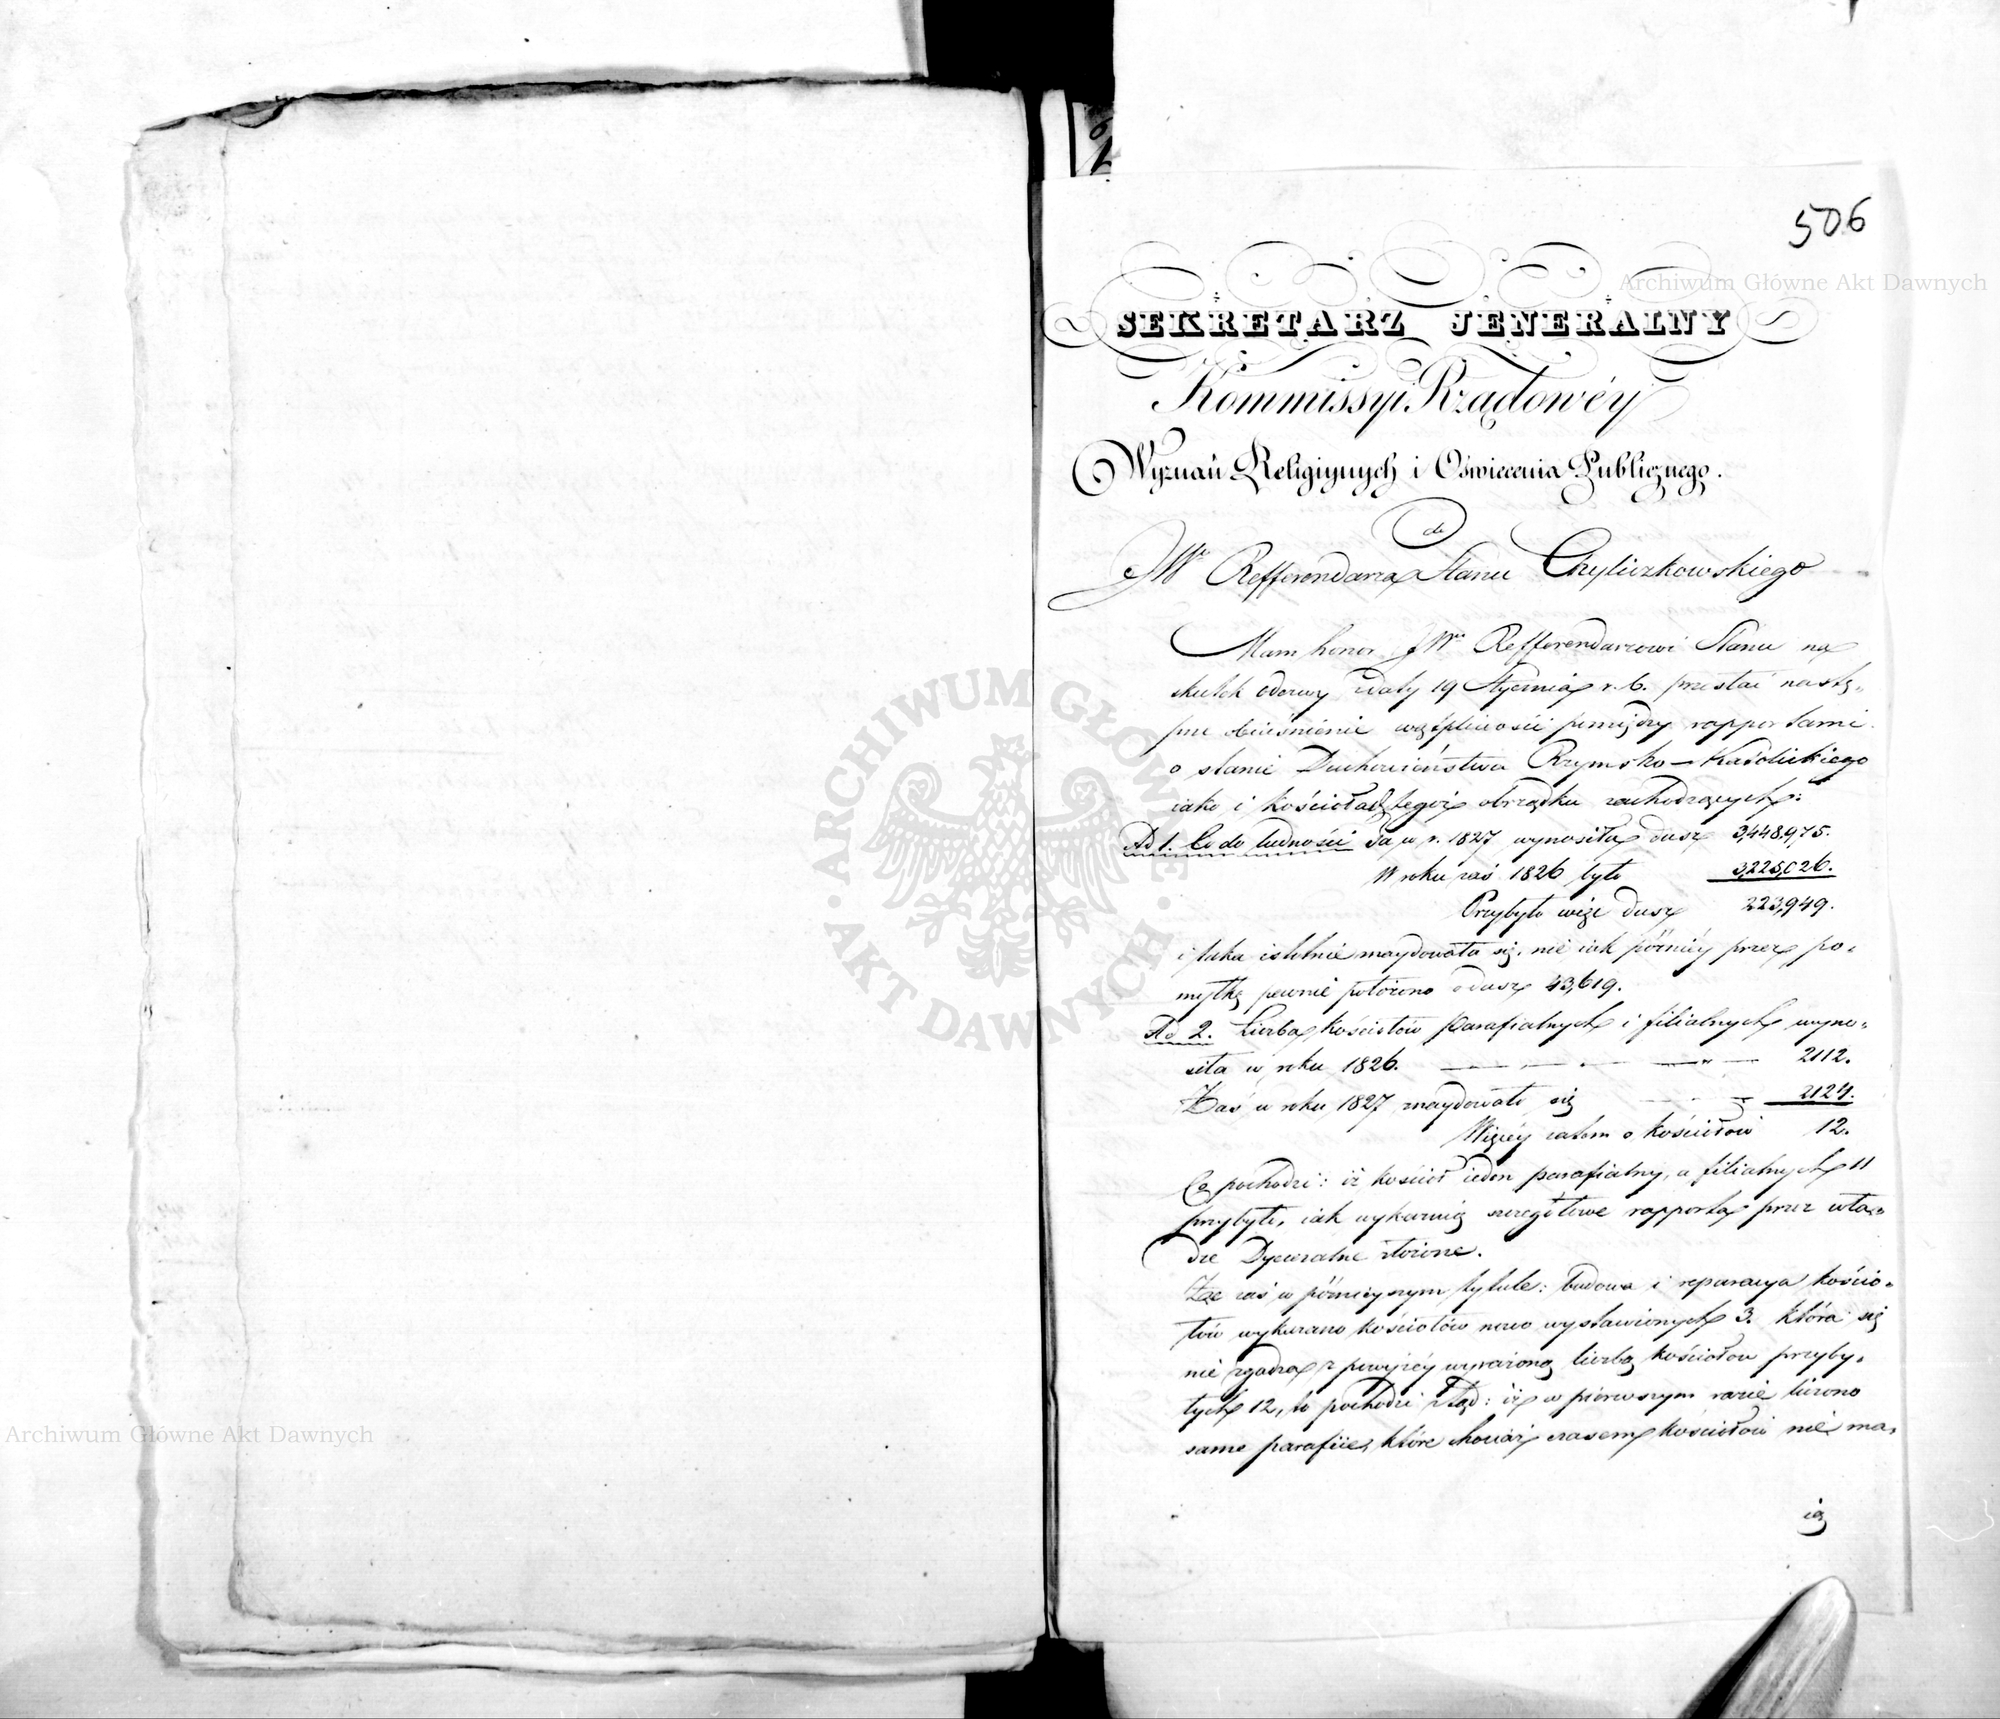 506
SEKRETARZ JENERALNY
Kommissyi Rządowéy
Wyznań Religiynych i Oświecenia Publicznego.
do
JWo Refferendarza Stanu Chyliczkowskiego
Mam honor JWu Refferendarzowi Stanu na
skutek odezwy z daty 19 Stycznia r. b. przesłać nastę-
pne obiaśnienie wątpliwości pomiędzy rapportami
o stanie Duchowieństwa Rzymsko-Katolickiego
iako i kościołach tegoż obrządku zachodzących:
Ad 1. Co do ludności Ta w r. 1827 wynosiła dusz 3,448,975.
W roku zaś 1826 było 3,225,026.
Przybyło więc dusz 223,949.
i taka istotnie znaydowała się, nie iak późniéy przez po-
myłkę pewnie położono o dusz 43,619.
Ad 2. Liczba kościołów parafialnych i filialnych wyno-
siła w roku 1826. 2112.
Zaś w roku 1827 znaydowało się 2124.
Więcéy zatem o kościołów 12.
Co pochodzi: iż kościoł ieden parafialny, a filialnych 11
przybyło, iak wykazuią szczegółowe rapporta przez wła-
dze Dyecezalne złożone.
Że zaś w późnieyszym tytule: budowa i reparacya kościo-
łów wykazano kościołów nowo wystawionych 3. która się
nie zgadza z powyżéy wyrażoną liczbą kościołów przyby-
łych 12, to pochodzi ztąd: iż w pierwszym razie liczono
same parafiie, które chociaż czasem kościołów nie ma-
ią
Archiwum Główne Akt Dawnych
Archiwum Główne Akt Dawnych
ARCHIWUM GŁÓWNE
AKT DAWNYCH